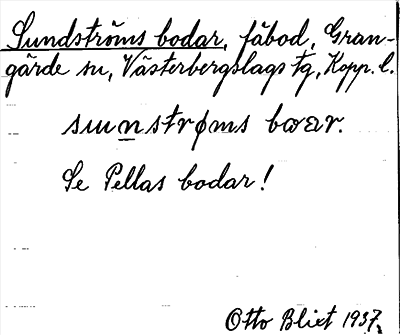 Sundströms bodar, fäbod, Gran-
gärde sn, Västerbergslags tg, Kopp. l.
sunstrøms bωar.
Se Pellas bodar!
Otto Blixt 1937.